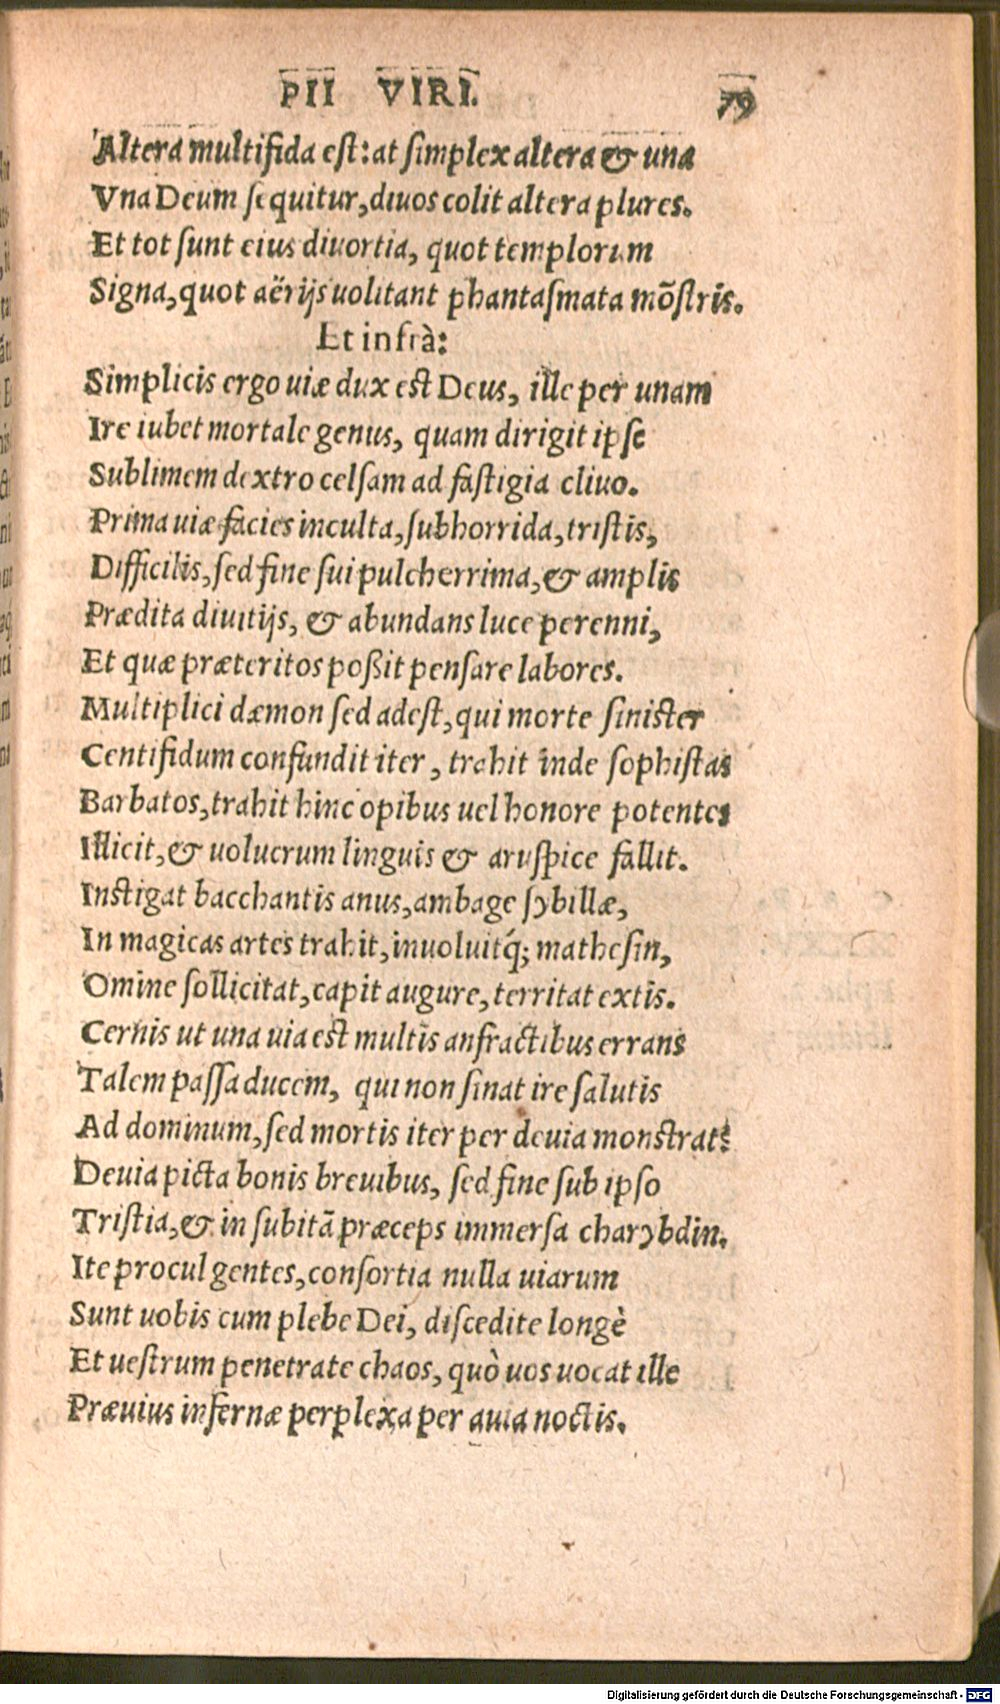 PII VIRI. 79
Altera multifida est: at simplex altera & una
Vna Deum sequitur, diuos colit altera plures.
Et tot sunt eius diuortia, quot templorum
Signa, quot aërijs uolitant phantasmata mõstris.
Et infrà:
Simplicis ergo uiæ dux est Deus, ille per unam
Ire iubet mortale genus, quam dirigit ipse
Sublimem dextro celsam ad fastigia cliuo.
Prima uiæ facies inculta, subhorrida, tristis,
Difficilis, sed fine sui pulcherrima, & amplis
Prædita diuitijs, & abundans luce perenni,
Et quæ præteritos poßit pensare labores.
Multiplici dæmon sed adest, qui morte sinister
Centifidum confundit iter, trahit inde sophistas
Barbatos, trahit hinc opibus uel honore potentes
Illicit, & uolucrum linguis & aruspice fallit.
Instigat bacchantis anus, ambage sybillæ,
In magicas artes trahit, inuoluitq́; mathesin,
Omine sollicitat, capit augure, territat extis.
Cernis ut una uia est multis anfractibus errans
Talem passa ducem, qui non sinat ire salutis
Ad dominum, sed mortis iter per deuia monstrat:
Deuia picta bonis breuibus, sed fine sub ipso
Tristia, & in subitã præceps immersa charybdin.
Ite procul gentes, consortia nulla uiarum
Sunt uobis cum plebe Dei, discedite longè
Et uestrum penetrate chaos, quò uos uocat ille
Præuius infernæ perplexa per auia noctis.
Digitalisierung gefördert durch die Deutsche Forschungsgemeinschaft - DFG